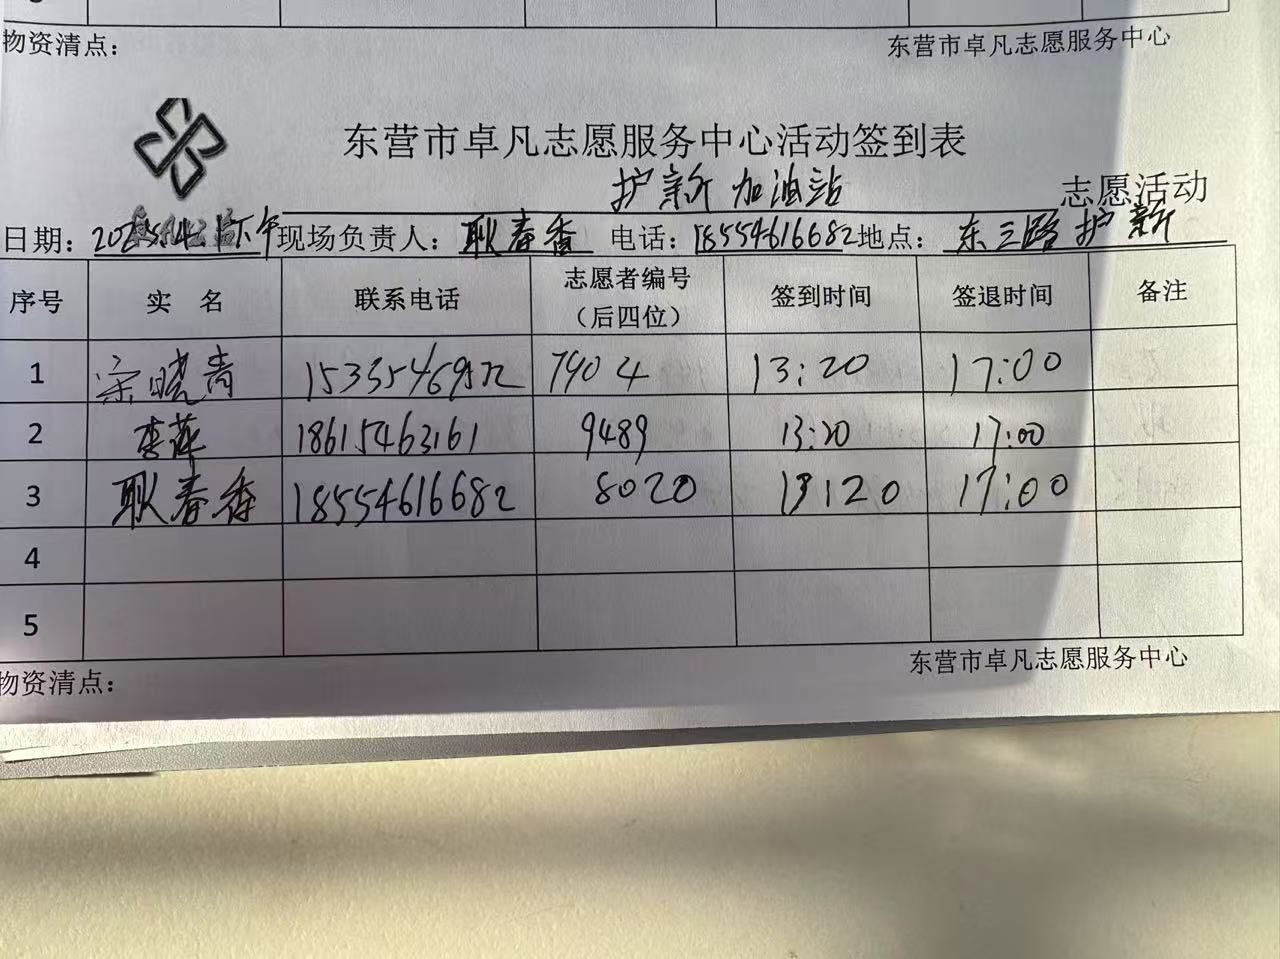 物资清点：
东营市卓凡志愿服务中心
东营市卓凡志愿服务中心活动签到表
护新加油站 志愿活动
日期： 下午 现场负责人：耿春香 电话：18554616682 地点：东三路护新
序号 实 名 联系电话 志愿者编号（后四位） 签到时间 签退时间 备注
1 宗晓青 7904 13:20 17:00
2 李萍 18615463161 9489 13:20 17:00
3 耿春香 18554616682 8020 13:20 17:00
4
5
物资清点：
东营市卓凡志愿服务中心